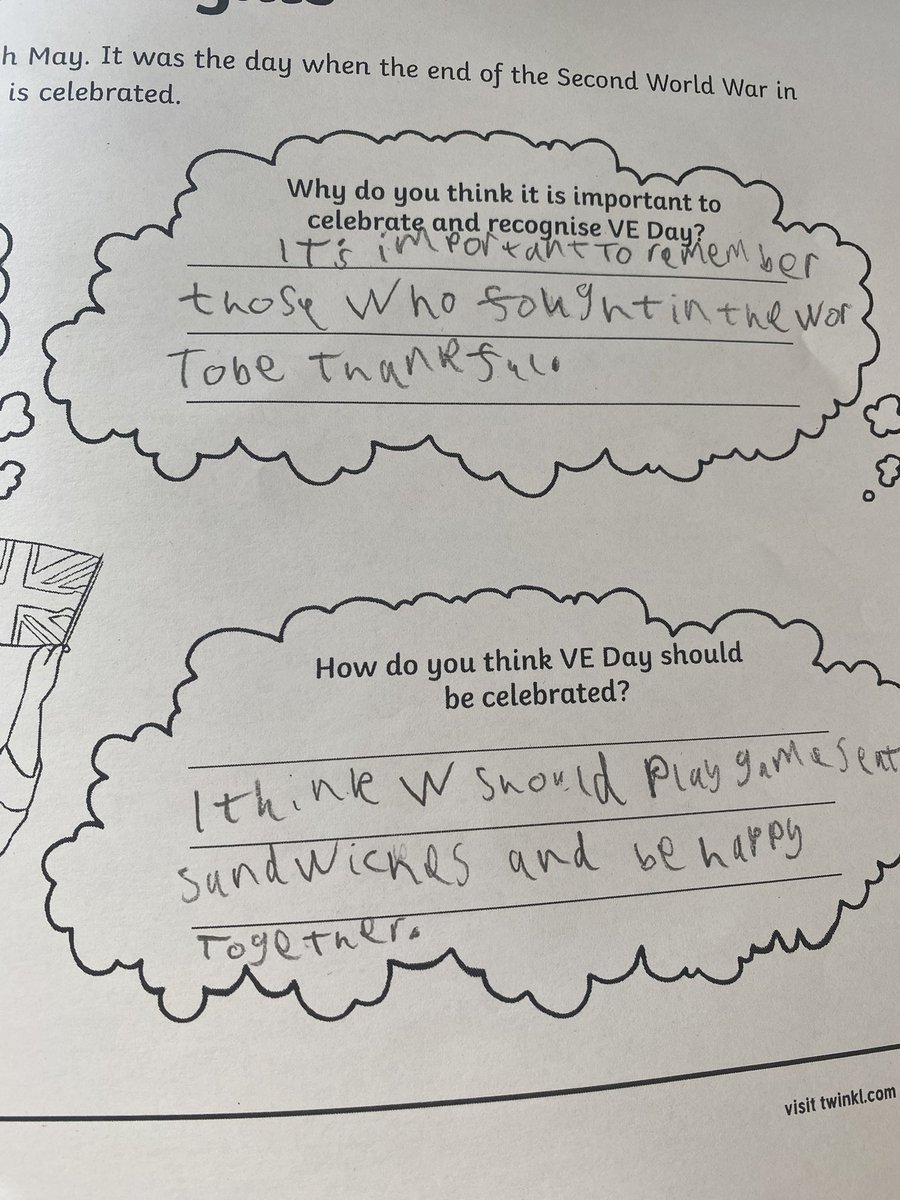 h May. It was the day when the end of the Second World War in
is celebrated.
Why do you think it is important to
celebrate and recognise VE Day?
It's important to remember
those who fought in the wor
To be thankful.
How do you think VE Day should
be celebrated?
I think W should play games eat
sandwiches and be happy
Together.
visit twinkl.com